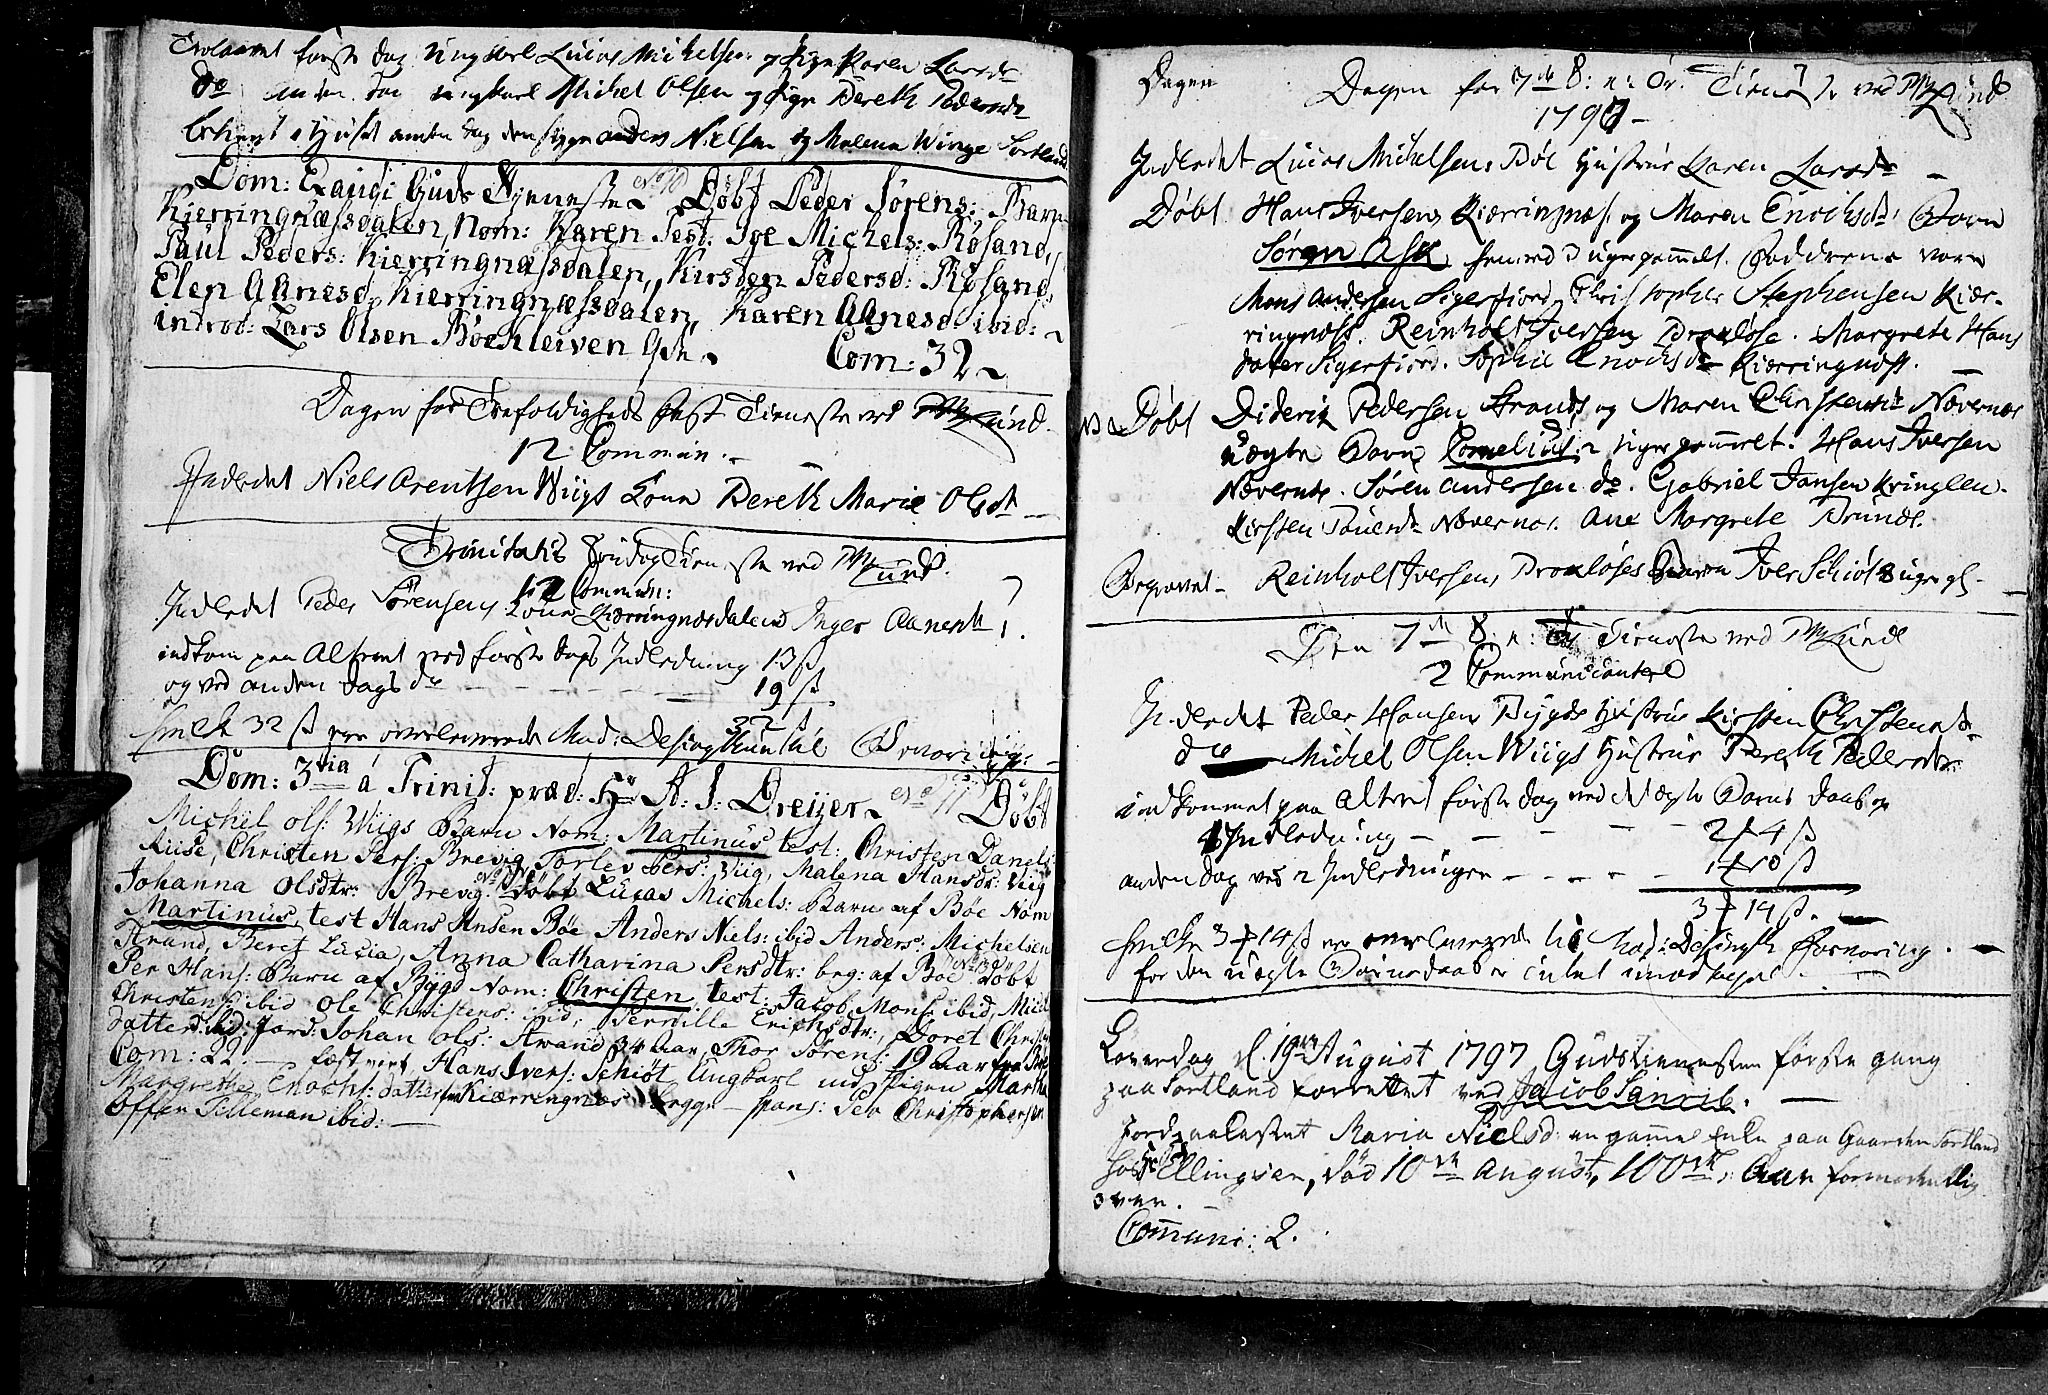 Trolovet første dag Ungkarl Lucas Michelsen og Pige Karen Larsdr
do anden dag ungkarl Michel Olsen og Pige Bereth Pedersdr
anden dag Anders Nielsen og Malena Winge Sortland
Dom: Exaudi Guds Tieneste No 10 Døbt Peder Sørens: Barn
Kierringnæssdalen, Nom: Karen Test: Ive Michels: Røsand,
Paul Peders: Kierringnæssdalen, Kirsten Pedersd: Røsand,
Elen Aanesd, Kierringnæssdalen, Karen Aanesd ibid:
introd: Lars Olsen Bøekleiven Qde
Com: 32
Dagen for Trefoldigheds Fest Tieneste ved Mr Lund.
12 Commun.
Indledet Niels Arentsen Wiigs Kone Bereth Marie Olsdr
Trinitatis Søndag Tieneste ved Mr Lund.
12 Commun:
Indledet Peder Sørensens Kone Kierringnæsdalen Inger Aanesdr
indkom paa Alteret ved første dags Indledning 13 ß
og ved anden dags do - - - 19 ß
32 ß
hvilke 32 ß ere overleverede Mad: Desingthun til
Dom: 3tia á Trinit: præd: Hr A: J: Dreyer No 11 Døbt
Michel ols: Wiigs Barn Nom: Martinus test: Christen Danels:
Kuse, Christen Pers: Brevig, Torlev Pers: Viig, Malena Hansdr: Viig
Johanna Olsdtr: Brevig. No 12 Døbt Lucas Michels: Barn af Bøe Nom
Martinus, test Hans Ansen Bøe, Anders Niels: ibid Anders: Michelsen
Strand, Beret Lucia, Anna Catharina Persdtr: beg: af Bøe No 13 Døbt
Per Hans: Barn af Bygd Nom: Christen, test: Jacob Mons: ibid, Michel
Christens: ibid Ole Christens: ibid, Pernille Erichsdtr:, Doret Christens
datter ibid: Jord: Johan ols: Strand 34 Aar, Thor Sørens: 19 Aar fra
Com: 22. — Fæst vert, Hans Ivers: Schiøt Ungkarl med Pigen Martha
Margrethe Enochs: datter fra Kiærringnes begge — spons: Per Christophersen
Offen Tilleman ibid: —
Dagen
Dagen for 7de S: e: Tr. Tieneste ved Mr Lund
1797 —
Indledet Lucas Michelsens Bøe Hustrue Karen Larsdr —
Døbt Hans Iversens Kiærringnæs og Maren Enochsdr Barn
Søren Ask hiemmed 3 uger gammelt. Fadderne vare
Mons Andersen Sigerfiord, Christopher Stephensen Kiær-
ringnæss. Reinholt Iversen Broxløse. Margrete Hans
dater Sigerfiord. Sophie Enochsdr Kiærringnæss. —
Døbt Diderik Pedersen Strands og Maren Christensdr Næwernæs
uægte Barn Cornelius 2 uger gammelt. Hans Iversen
Næwernæs. Søren Andersen do. Gabriel Jansen Kringlen.
Kirsten Pouelsdr Næwernæs. Ane Margrete Brunds.
Begravet. Reinholt Iversens Broxløses Barn Iver Schiøt 8 uger gl.
Den 7de S: e: Tr. Tieneste ved Mr Lund
2 Communicantere
Indledet Peder Hansens Bygds Hustrue Kirsten Christensdr
do — Michel Olsen Wiigs Hustrue Bereth Pedersdr
indkommet paa Alteret første dag ved det ægte Barns Daab og
1 Indledning - - - - - 2 ƒ 4 ß
anden dag ved 2 Indledninger - - - - - 1 ƒ 10 ß
3 ƒ 14 ß.
hvilke 3 ƒ 14 ß ere overleverede til Mad: Desingth forvaring. —
for den uægte Barnedaab er intet imodtaget. —
Løverdag d. 19de August 1797 Gudstienesten første gang
paa Sortland forrettet ved Jacob Sanxib. —
Jordpaakastet Maria Nielsd en gammel Enke paa Gaarden Sortland
hos Ellingsen, død 10de August, 100de Aar formodentlig
oven.
Communi: 2.